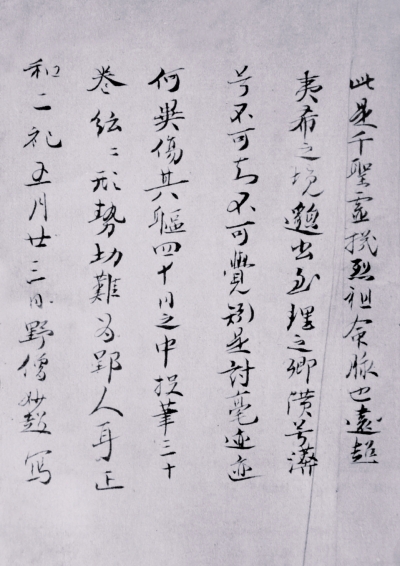 此是千聖靈機烈祖命脉也遠超
夷希之境邈出至理之鄉潢兮漭
兮不可知不可覺是討毫迹迹
何異傷其軀四十日之中投筆三十
卷紜〻形勢切難為郢人耳正
和二祀五月廿三日野僧妙超寫